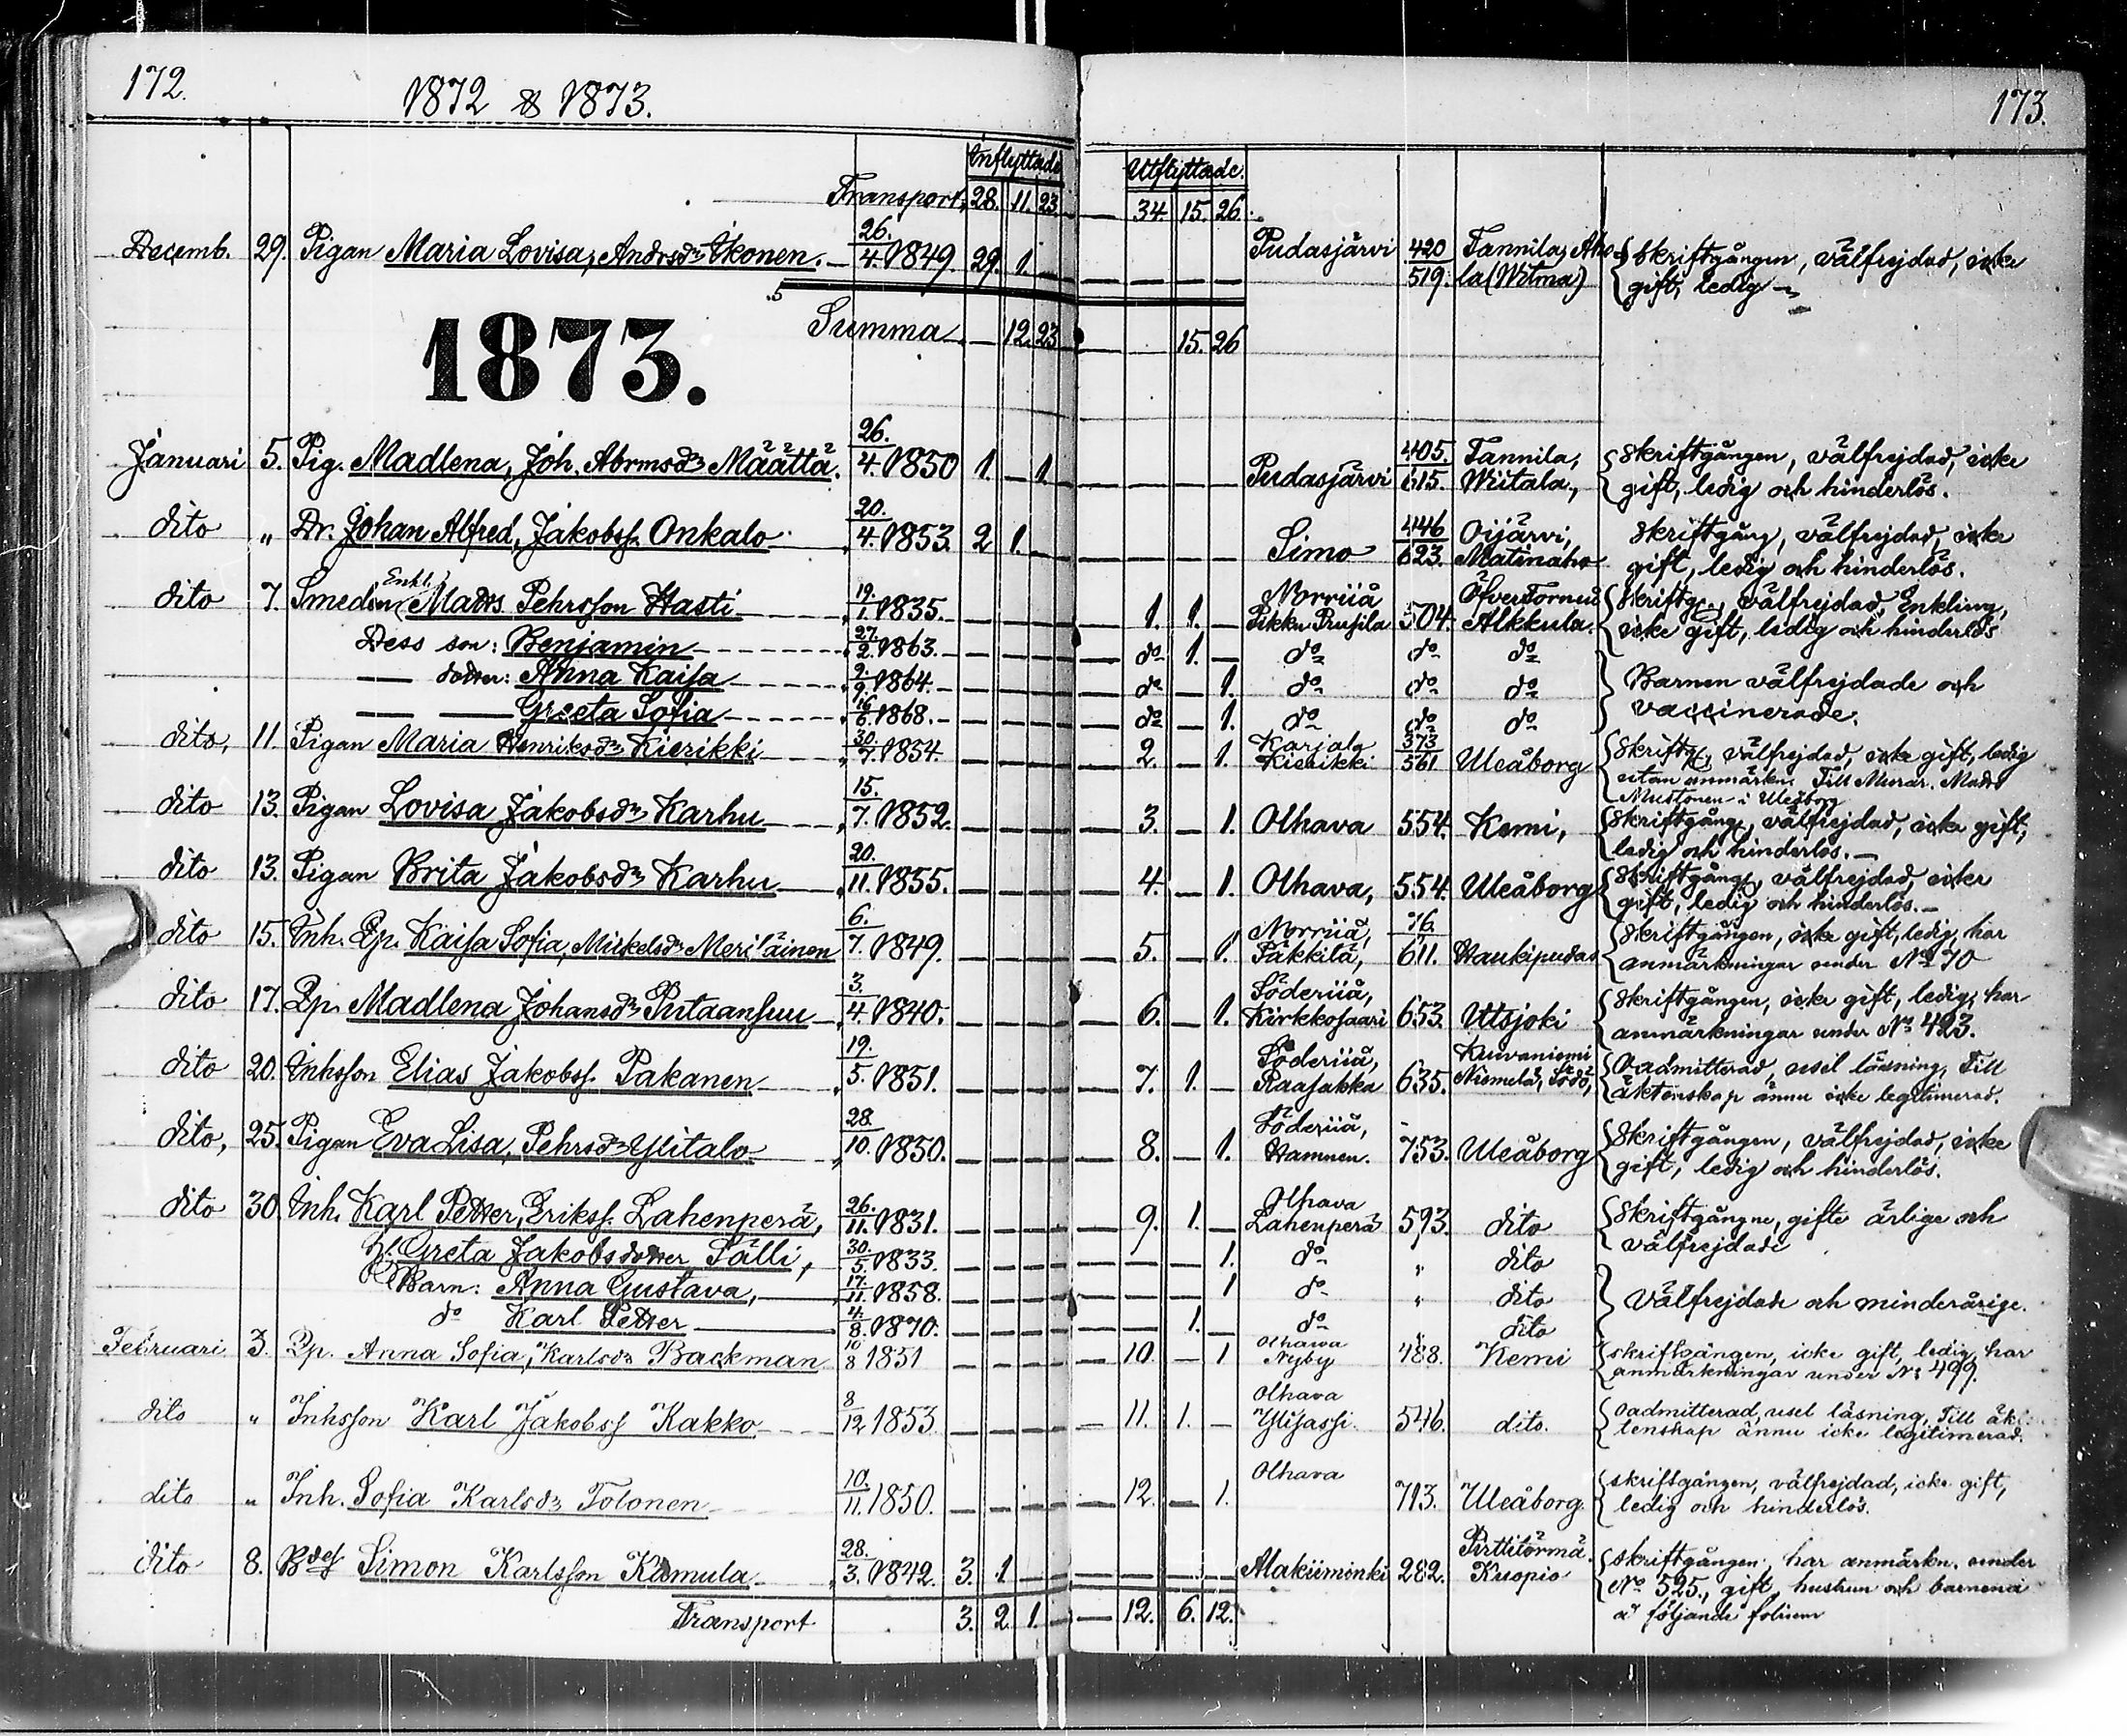 172.
1872 & 1873.
Inflyttade
Transport, 28. 11. 23
Decemb. 29. Pigan Maria Lovisa, Andrsdr Ikonen. 26./4. 1849. 29. 1.
Summa 12. 23
1873.
Januari 5. Pig. Madlena, Joh. Abrmsdr Määttä. 26./4. 1850 1. 1
dito " Dr. Johan Alfred, Jakobss. Onkalo 20./4. 1853. 2 1.
dito 7. Smeden Enkl. Matts Pehrsson Hasti 19./1. 1835.
Dess son: Benjamin 27./2. 1863.
dotter: Anna Kaisa 2./9. 1864.
Greeta Sofia 16/6. 1868.
dito, 11. Pigan Maria Henriksdr Kierikki 30./7. 1854.
dito 13. Pigan Lovisa Jakobsdr Karhu 15./7. 1852.
dito 13. Pigan Brita Jakobsdr Karhu 20./11. 1855.
dito 15. Inh. Qp. Kaisa Sofia, Mickelsdr Meriläinen 6./7. 1849.
dito 17. Qp. Madlena Johansdr Putaansuu 3./4. 1840.
dito 20. Inhsson Elias Jakobss. Pakanen 19./5. 1851.
dito, 25. Pigan Eva Lisa, Pehrsdr Ylitalo 28./10. 1850.
dito 30. Inh. Karl Petter, Erikss. Lahenperä, 26./11. 1831.
H. Greta Jakobsdotter Sälli, 30./5. 1833.
Barn: Anna Gustava, 17./11. 1858.
do Karl Petter 4./8. 1870.
Februari 3. Qp. Anna Sofia, Karlsdr Backman 10/8 1851
dito " Inhsson Karl Jakobss Kakko 8/12 1853.
dito " Inh. Sofia Karlsdr Tolonen 10./11. 1850.
dito 8. Bdes Simon Karlsson Kamula 28./3. 1842. 3. 1
Transport 3. 2. 1.
173.
Utflyttade.
34. 15. 26.
Pudasjärvi 420/519. Tannila, Aho-
la (Witma) Skriftgången, välfrejdad, icke
gift, ledig
15. 26
Pudasjärvi 405./615. Tannila,
Wiitala, Skriftgången, välfrejdad, icke
gift, ledig och hinderlös.
Simo 446/623. Oijärvi,
Matinaho Skriftgång, välfrejdad, icke
gift, ledig och hinderlös.
1. 1. Norriiå
Pikku Prusila 504. ÖfverTorneå
Alkkula. Skriftg., välfrejdad, Enkling,
icke gift, ledig och hinderlös
do 1. do do do
do 1. do do do Barnen välfrejdade och
do 1. do do do vaccinerade.
2. 1. Karjala
Kierikki 373/561 Uleåborg Skriftg, välfrejdad, icke gift, ledig
utan anmärkn. Till Murar. Matts
Mustonen i Uleåborg
3. 1. Olhava 554. Kemi, Skriftgång, välfrejdad, icke gift,
ledig och hinderlös.
4. 1. Olhava, 554. Uleåborg Skriftgång, välfrejdad, icke
gift, ledig och hinderlös.
5. 1. Norriiå,
Päkkilä, 76./611. Haukipudas Skriftgången, icke gift, ledig, har
anmärkningar under No 70
6. 1. Söderiiå,
Kirkkosaari 653. Utsjoki Skriftgången, icke gift, ledig, har
anmärkningar under No 423.
7. 1. Söderiiå,
Raasakka 635. Kuivaniemi
Niemelä, Oadmitterad, usel läsning, Till
äktenskap ännu icke legitimerad.
8. 1. Söderiiå,
Hamnen. 753. Uleåborg Skriftgången, välfrejdad, icke
gift, ledig och hinderlös.
9. 1. Olhava
Lahenperä 593. dito Skriftgångne, gifte ärlige och
välfrejdade
1. do " dito
1 do " dito Välfrejdade och minderårige.
1. do dito
10. 1 Olhawa
Nyby 488. Kemi skriftgången, icke gift, ledig, har
anmärkningar under No 499.
11. 1. Olhava
Ylijassi. 546. dito. Oadmitterad, usel läsning, Till äk-
tenskap ännu icke legitimerad.
12. 1. Olhava
713. Uleåborg. skriftgången, välfrejdad, icke gift,
ledig och hinderlös.
Alakiiminki 282. Pirttitörmä.
Kuopio skriftgången, har anmärkn. under
No 525., gift, hustrun och barnena
å följande folium
12. 6. 12.